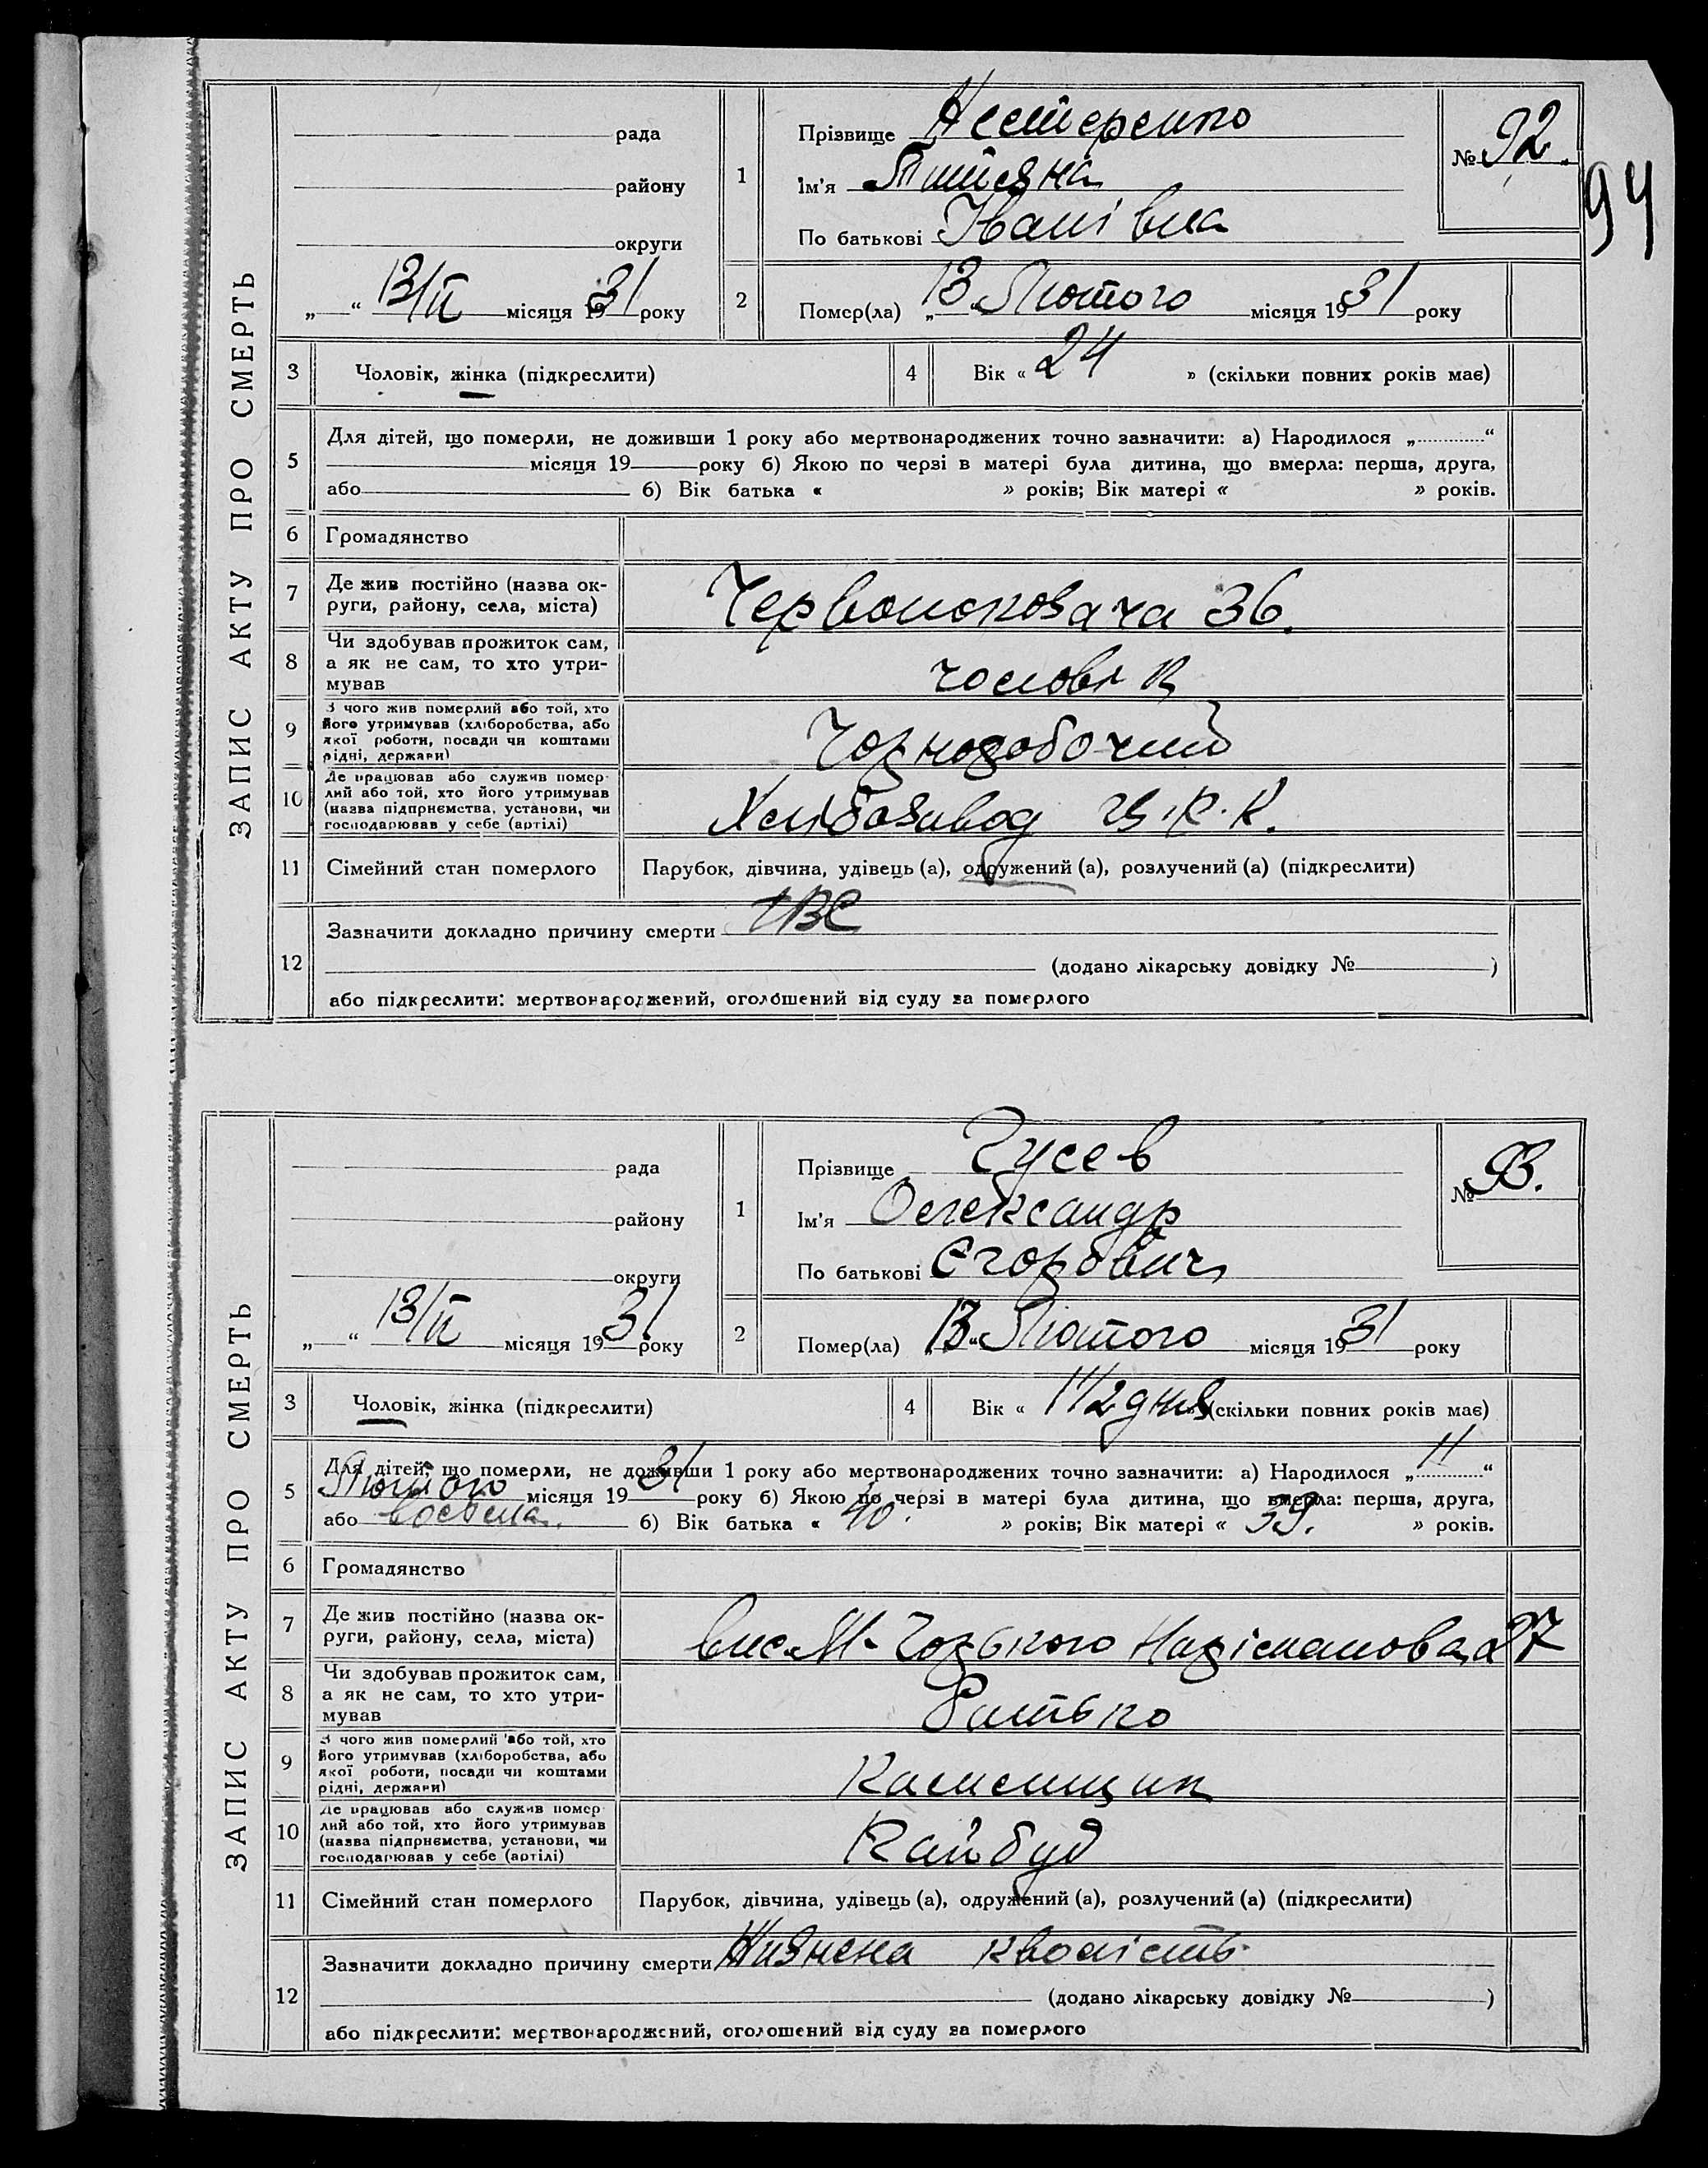 94
ЗАПИС АКТУ ПРО СМЕРТЬ
рада
району
округи
„ “ 13/II місяця 1931 року
1
Прізвище Нестеренко
Ім'я Титяна
По батькові Іванівна
№ 92.
2
Помер(ла) „13 Лютого місяця 1931 року
3
Чоловік, жінка (підкреслити)
4
Вік « 24 » (скільки повних років має)
5
Для дітей, що померли, не доживши 1 року або мертвонароджених точно зазначити: а) Народилося „ “
місяця 19 року б) Якою по черзі в матері була дитина, що вмерла: перша, друга,
або б) Вік батька « » років; Вік матері « » років.
6
Громадянство
7
Де жив постійно (назва ок-
руги, району, села, міста)
Червонокозача 36.
8
Чи здобував прожиток сам,
а як не сам, то хто утри-
мував
чоловік
9
З чого жив померлий або той, хто
його утримував (хліборобства, або
якої роботи, посади чи коштами
рідні, держави)
Чорноробочий
10
Де працював або служив помер-
лий або той, хто його утримував
(назва підприємства, установи, чи
господарював у себе (артілі)
Хлібозавод Ц.Р.К.
11
Сімейний стан померлого
Парубок, дівчина, удівець (а), одружений (а), розлучений (а) (підкреслити)
12
Зазначити докладно причину смерти ТВС
(додано лікарську довідку № )
або підкреслити: мертвонароджений, оголошений від суду за померлого
ЗАПИС АКТУ ПРО СМЕРТЬ
рада
району
округи
„ “ 13/II місяця 1931 року
1
Прізвище Гусев
Ім'я Олександр
По батькові Єгорович
№ 93.
2
Помер(ла) „13“ Лютого місяця 1931 року
3
Чоловік, жінка (підкреслити)
4
Вік « 1 1/2 дня » (скільки повних років має)
5
Для дітей, що померли, не доживши 1 року або мертвонароджених точно зазначити: а) Народилося „11“
Лютого місяця 1931 року б) Якою по черзі в матері була дитина, що вмерла: перша, друга,
або восьма. б) Вік батька « 40. » років; Вік матері « 39. » років.
6
Громадянство
7
Де жив постійно (назва ок-
руги, району, села, міста)
вис. М. Горького Наріманова 27
8
Чи здобував прожиток сам,
а як не сам, то хто утри-
мував
Батько
9
З чого жив померлий або той, хто
його утримував (хліборобства, або
якої роботи, посади чи коштами
рідні, держави)
Каменщик
10
Де працював або служив помер-
лий або той, хто його утримував
(назва підприємства, установи, чи
господарював у себе (артілі)
Сімейний стан померлого
11
Парубок, дівчина, удівець (а), одружений (а), розлучений (а) (підкреслити)
12
Зазначити докладно причину смерти Жизнєна кволість
(додано лікарську довідку № )
або підкреслити: мертвонароджений, оголошений від суду за померлого